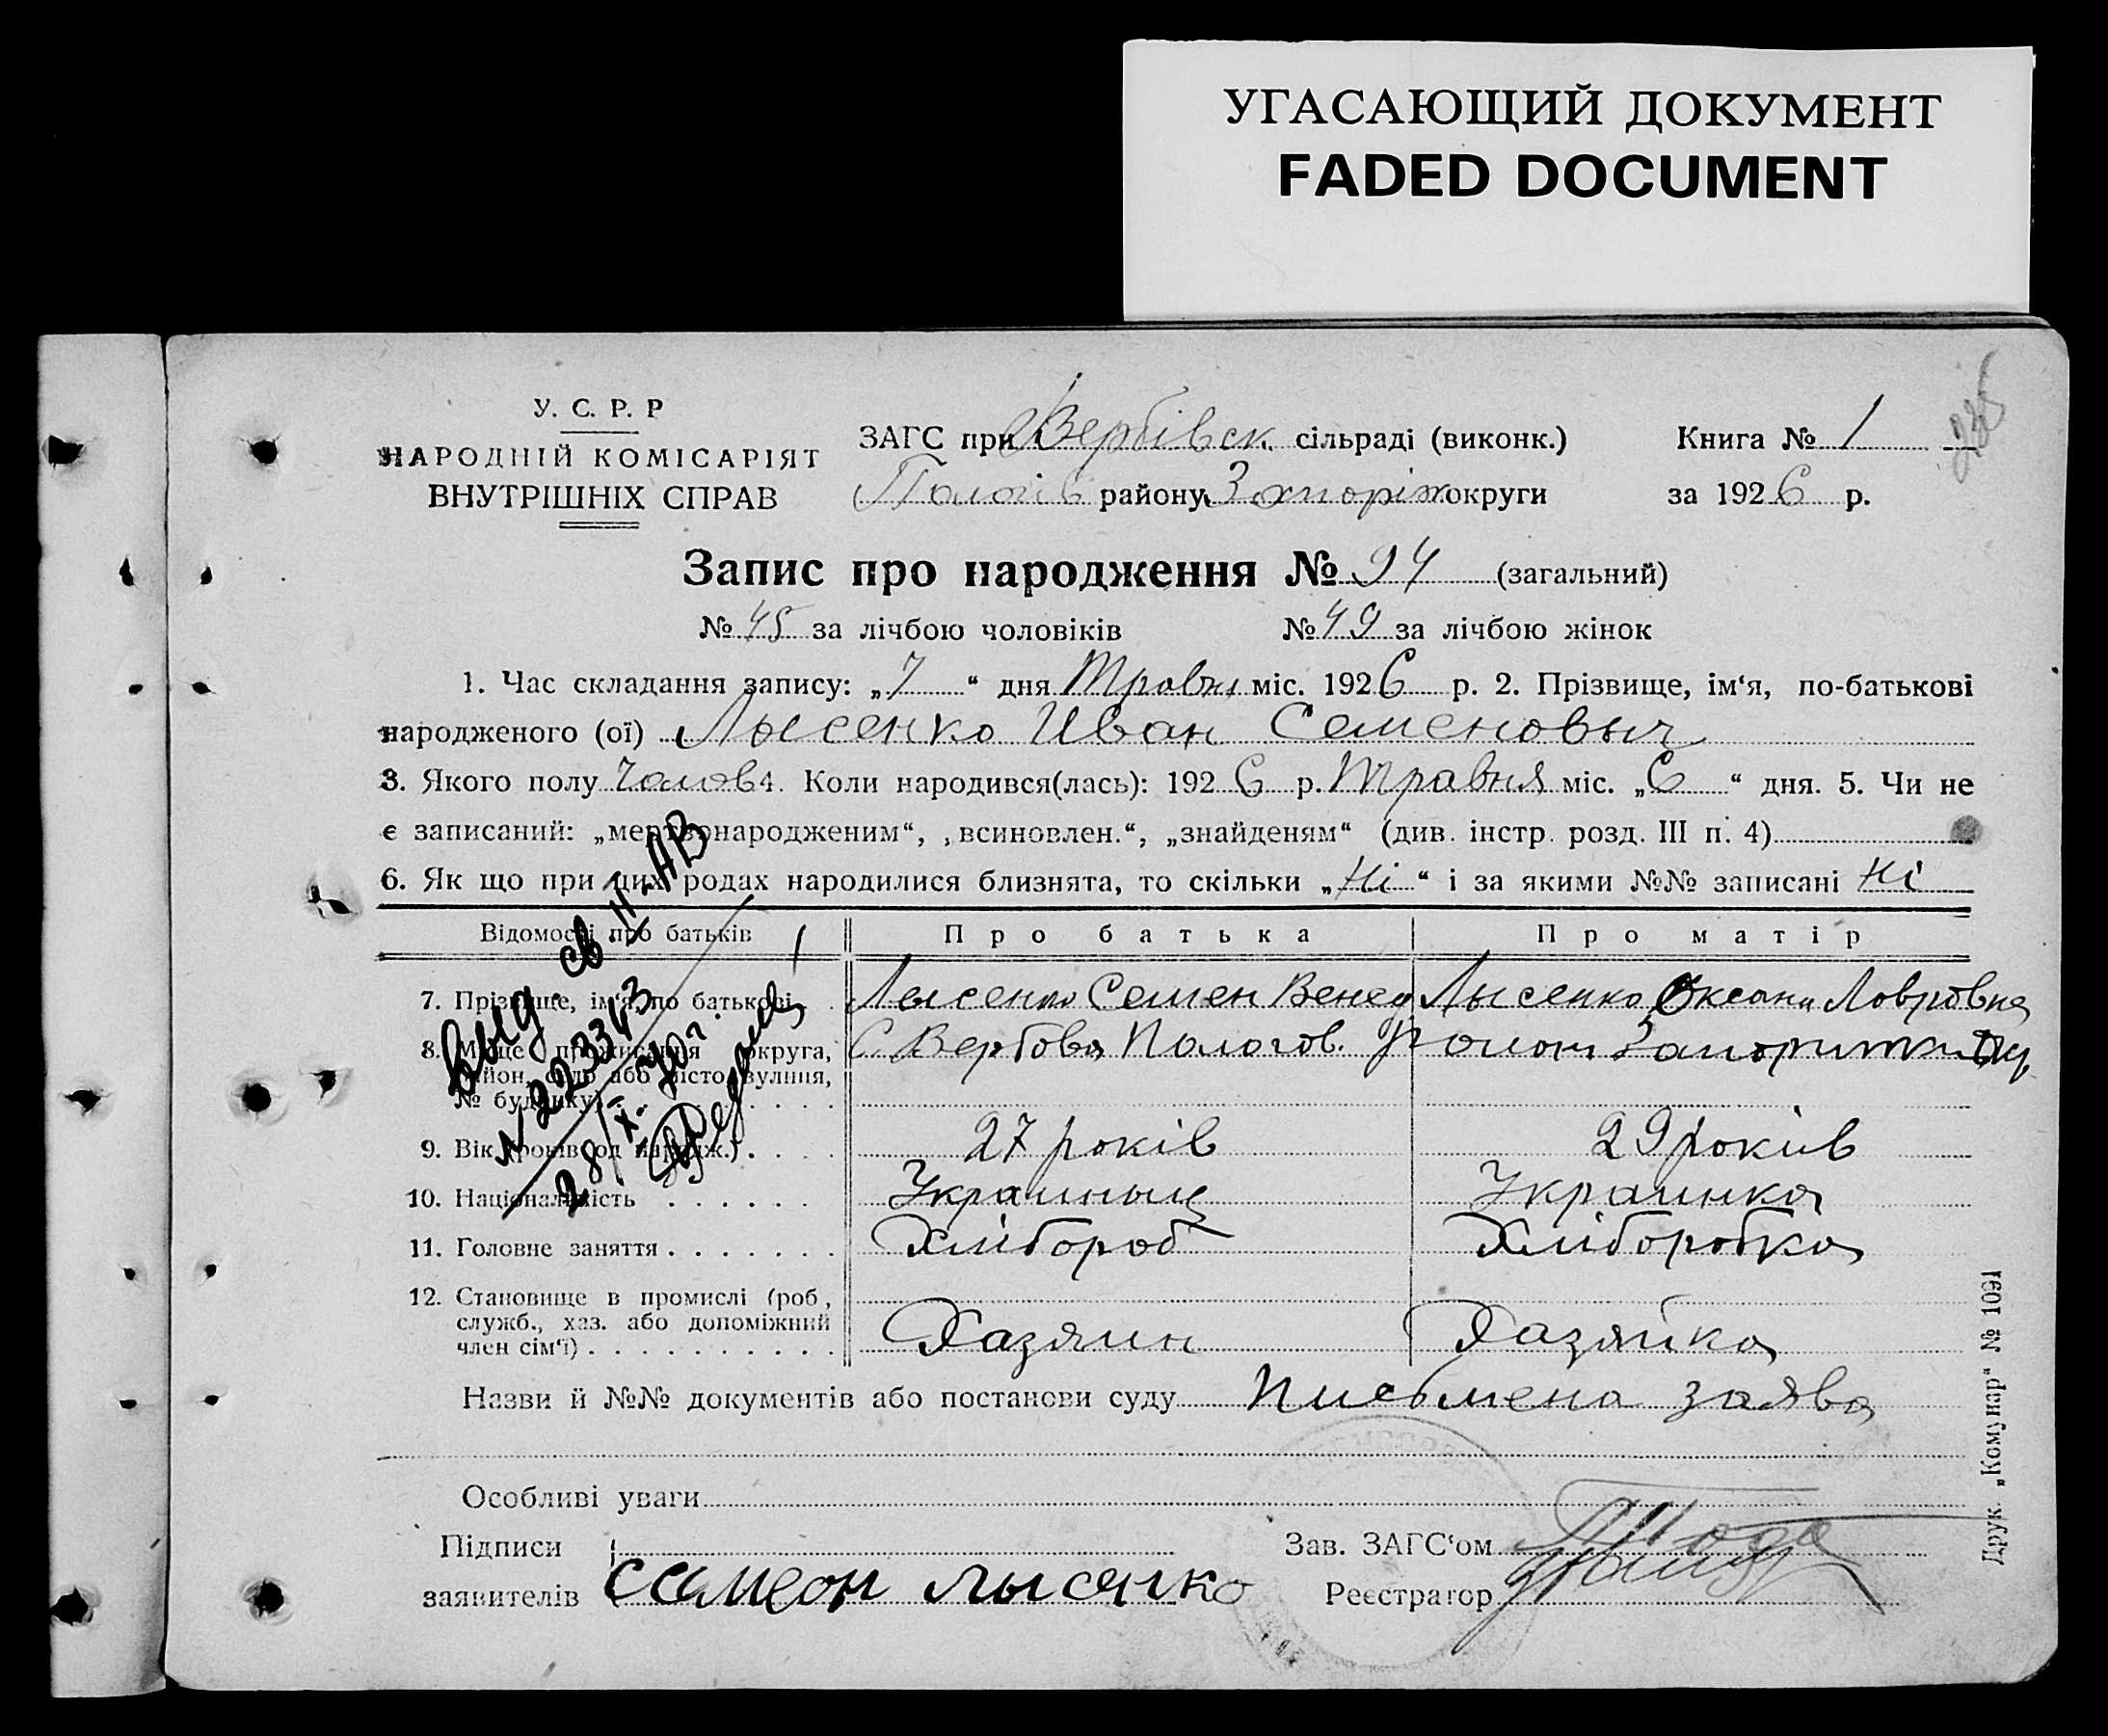 УГАСАЮЩИЙ ДОКУМЕНТ
FADED DOCUMENT
У. С. Р. Р
НАРОДНІЙ КОМІСАРІЯТ
ВНУТРІШНІХ СПРАВ
ЗАГС при Вербівск. сільраді (виконк.)
Пологів району Запоріж округи
Книга № 1
за 1926 р.
Запис про народження № 94 (загальний)
№ 45 за лічбою чоловіків № 49 за лічбою жінок
1. Час складання запису: „7“ дня Травня міс. 1926 р. 2. Прізвище, ім‘я, по-батькові
народженого (ої) Лысенко Иван Семеновыч
3. Якого полу Чолов 4. Коли народився(лась): 1926 р. Травня міс. „6“ дня. 5. Чи не
є записаний: „мертвонародженим“, „всиновлен.“, „знайденям“ (див. інстр. розд. III п. 4)
6. Як що при цих родах народилися близнята, то скільки „Ні“ і за якими №№ записані Ні
Відомості про батьків Про батька Про матір
7. Прізвище, ім‘я, по батькові Лысенко Семен Венед Лысенко Оксана Лавровна
8. Місце проживання округа, С Вербова Пологов. району Запорижжя Окр
район, село або місто, вулиця,
№ будинку)
9. Вік (років од народж.) 27 років 29 років
10. Національність Украиныц Украинка
11. Головне заняття Хлібороб Хліборобка
12. Становище в промислі (роб,
служб., хаз. або допоміжний Хазяин Хазяйка
член сім‘ї)
Выд. св. II-АВ
№ 223343
28/X-40г.
Назви й №№ документів або постанови суду Письмена заява
Особливі уваги
Підписи
заявителів семеон лысенко
Зав. ЗАГС‘ом
Реєстратор
Друк. „Комунар“ № 1091